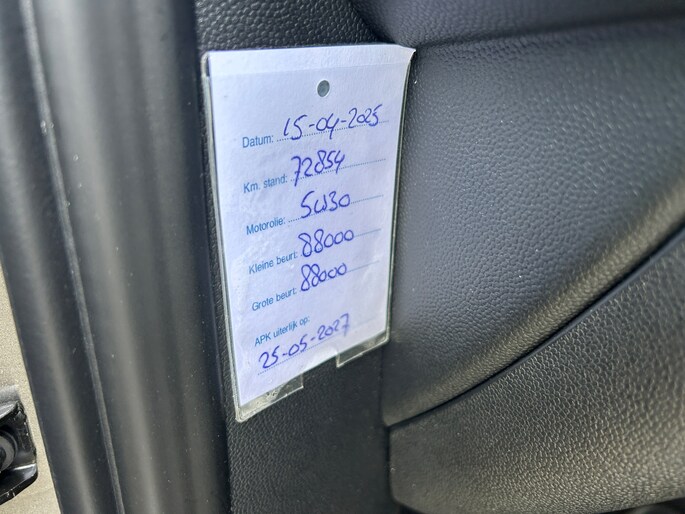 Datum: 15-04-2025
Km. stand: 72854
Motorolie: 5W30
Kleine beurt: 88000
Grote beurt: 88000
APK uiterlijk op:
25-05-2027